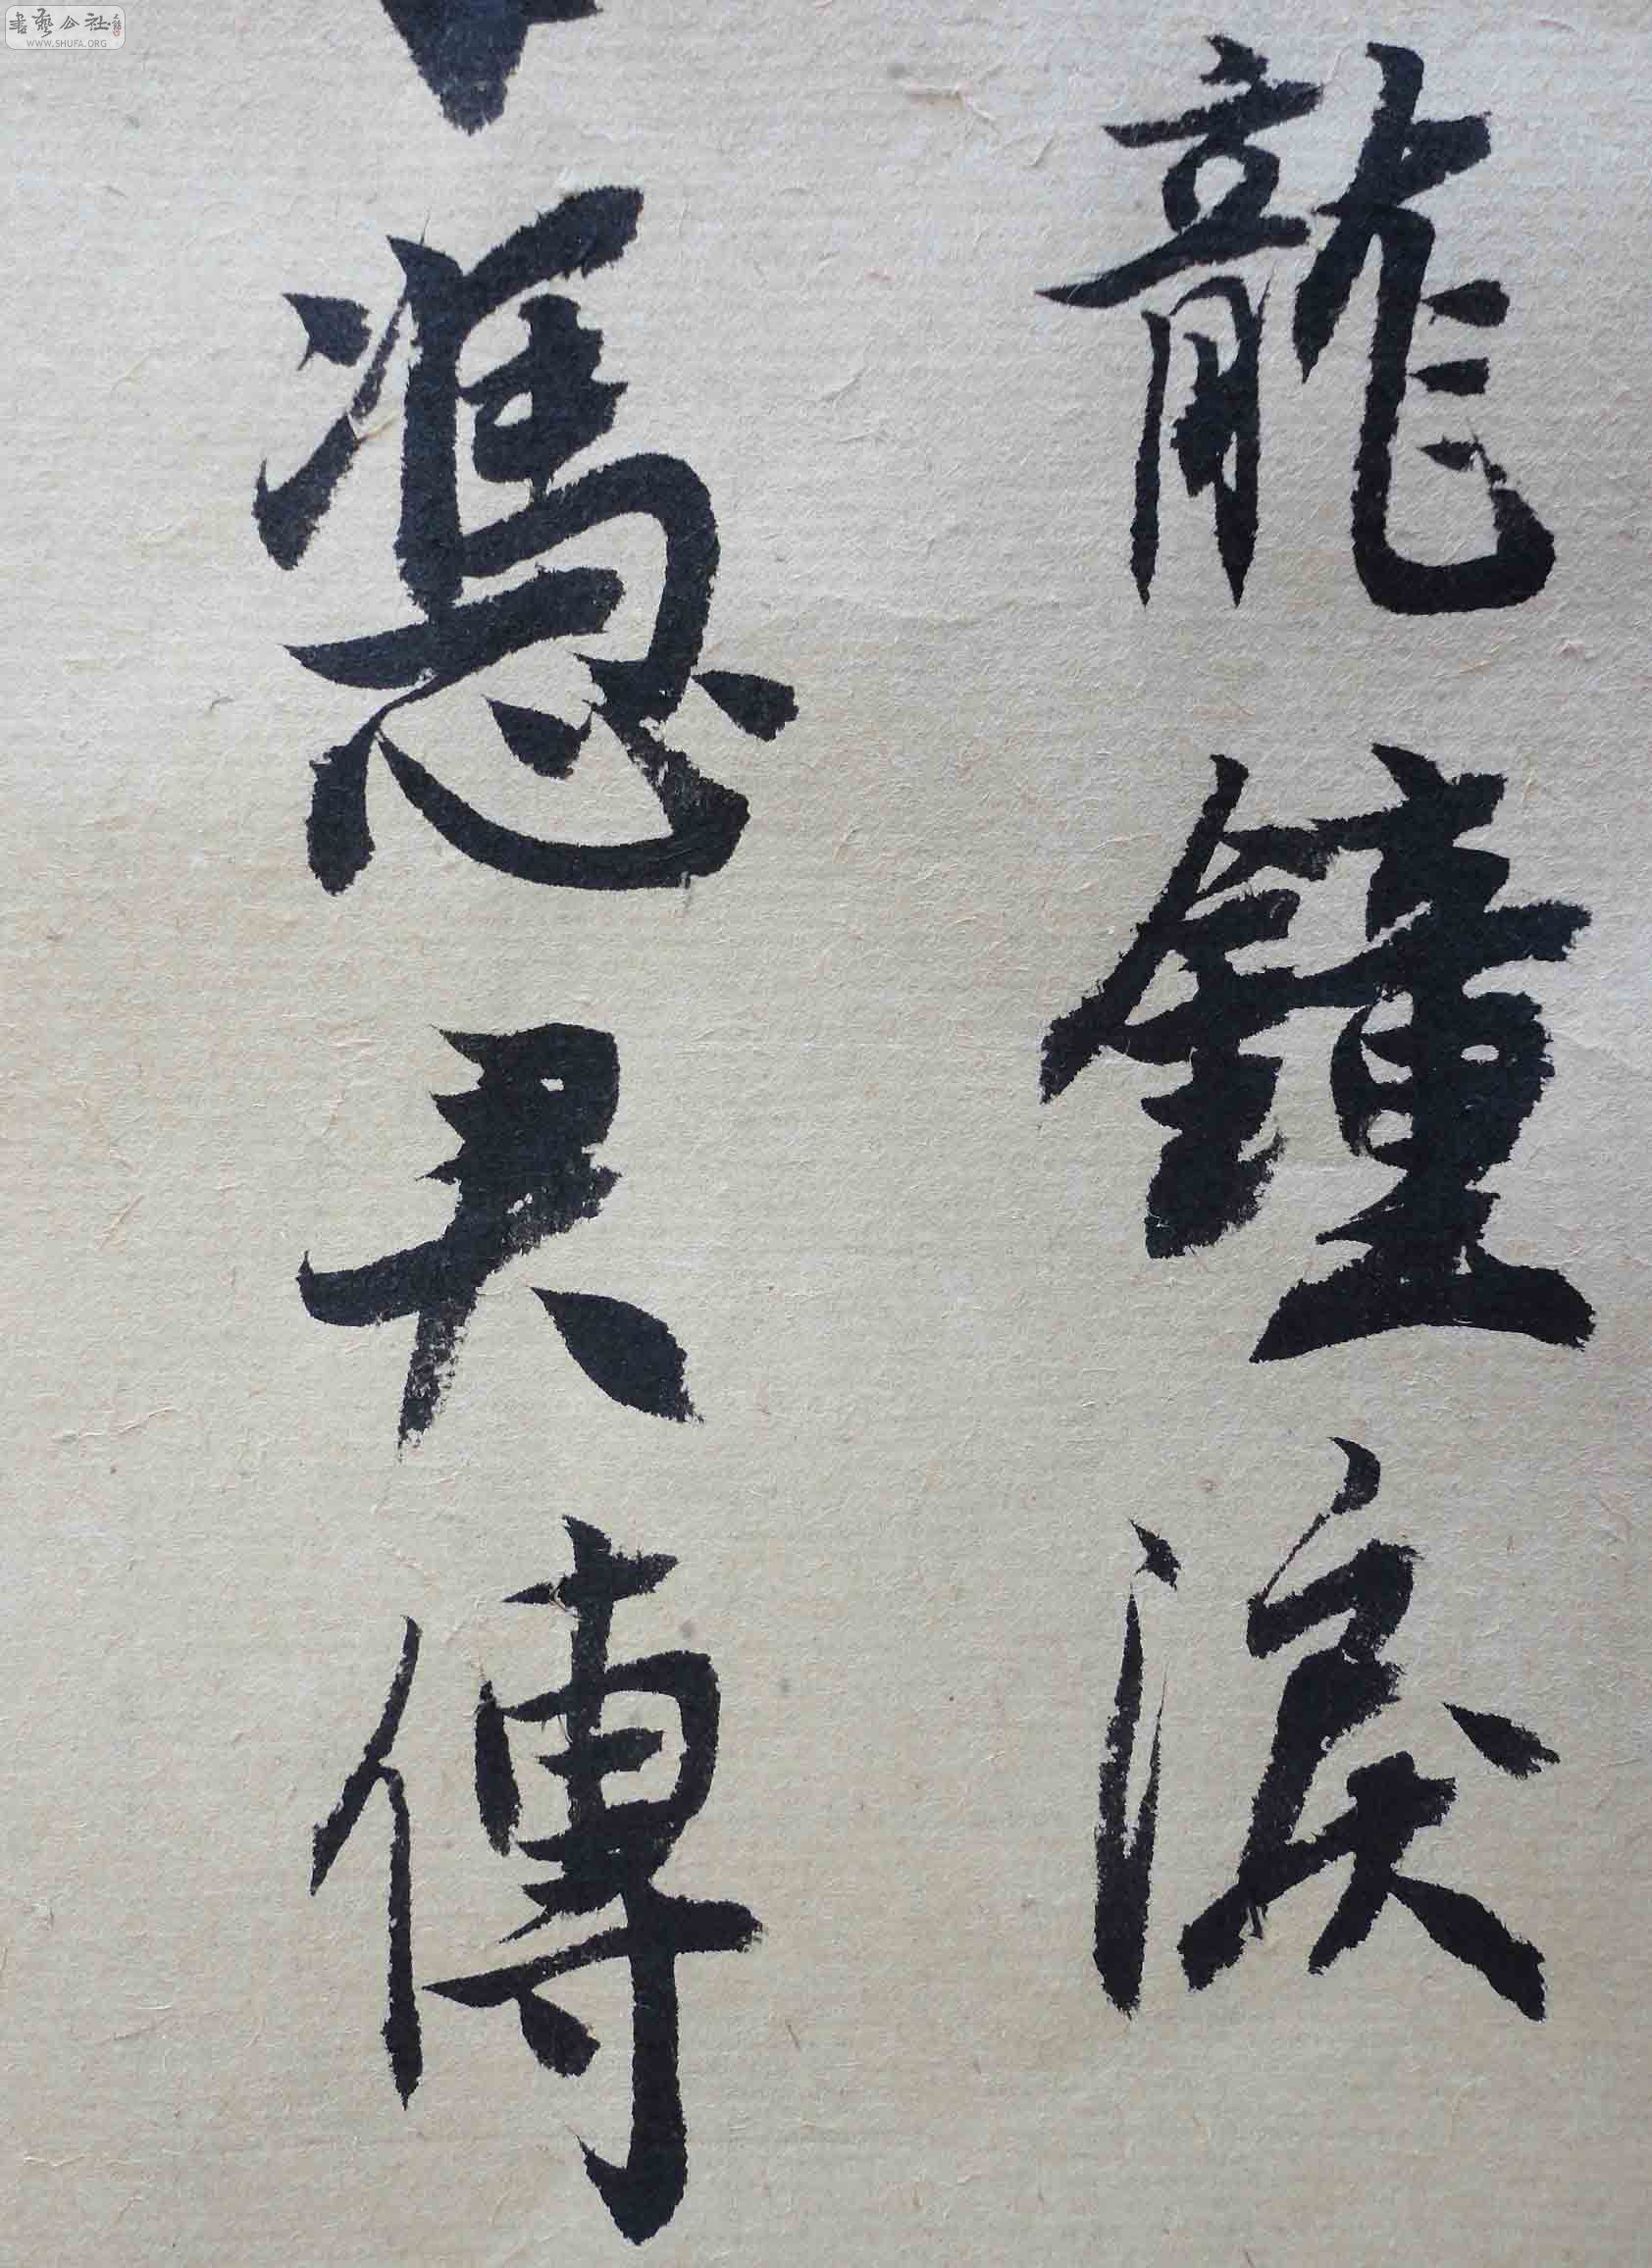 書藝公社
WWW.SHUFA.ORG
龍鐘淚
憑君傳